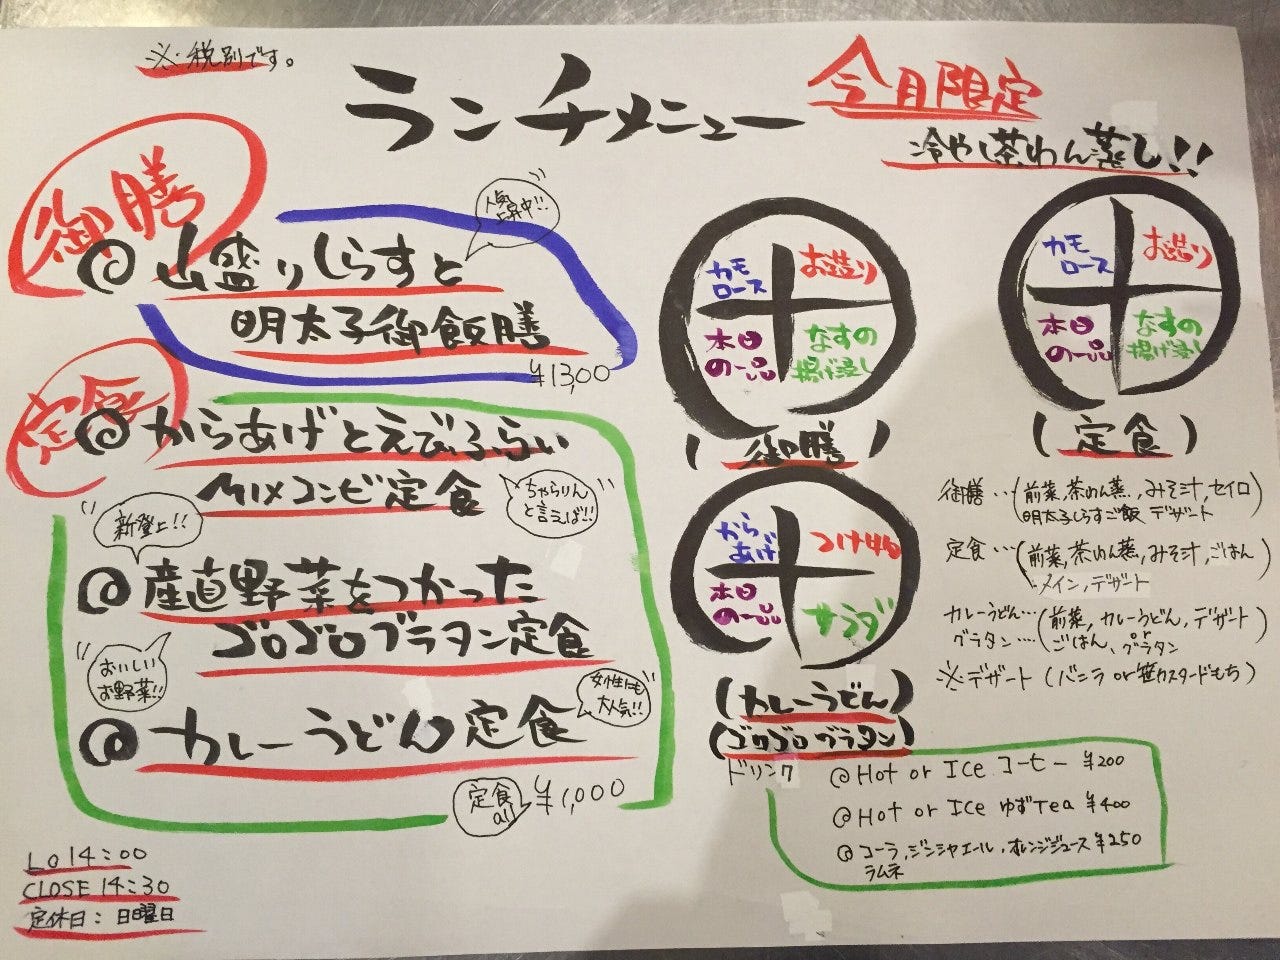 ※税別です。
ランチメニュー
今月限定
冷やし茶わん蒸し!!
御膳
@山盛りしらすと
明太子御飯膳
人気上昇中!!
¥13,00
定食
@からあげとえびふらい
MIXコンビ定食
ちゃらりんと言えば!!
新登場!!
@産直野菜をつかった
ゴロゴログラタン定食
おいしいお野菜!!
@カレーうどん定食
女性にも大人気!!
定食all
¥1,000
LO 14:00
CLOSE 14:30
定休日:日曜日
カモロース
お造り
本日の一品
なすの揚げ浸し
(御膳)
カモロース
お造り
本日の一品
なすの揚げ浸し
(定食)
からあげ
つけ
本日の一品
サラダ
(カレーうどん)
(ゴロゴログラタン)
御膳…(前菜,茶わん蒸,みそ汁,セイロ
明太子しらすご飯 デザート)
定食…(前菜,茶わん蒸,みそ汁,ごはん
メイン,デザート)
カレーうどん…(前菜,カレーうどん,デザート
グラタン…ごはん、or グラタン)
※デザート(バニラ or 笹カスタードもち)
ドリンク
@Hot or Ice コーヒー ¥200
@Hot or Ice ゆずTea ¥400
@コーラ,ジンジャエール,オレンジジュース ¥250
ラムネ